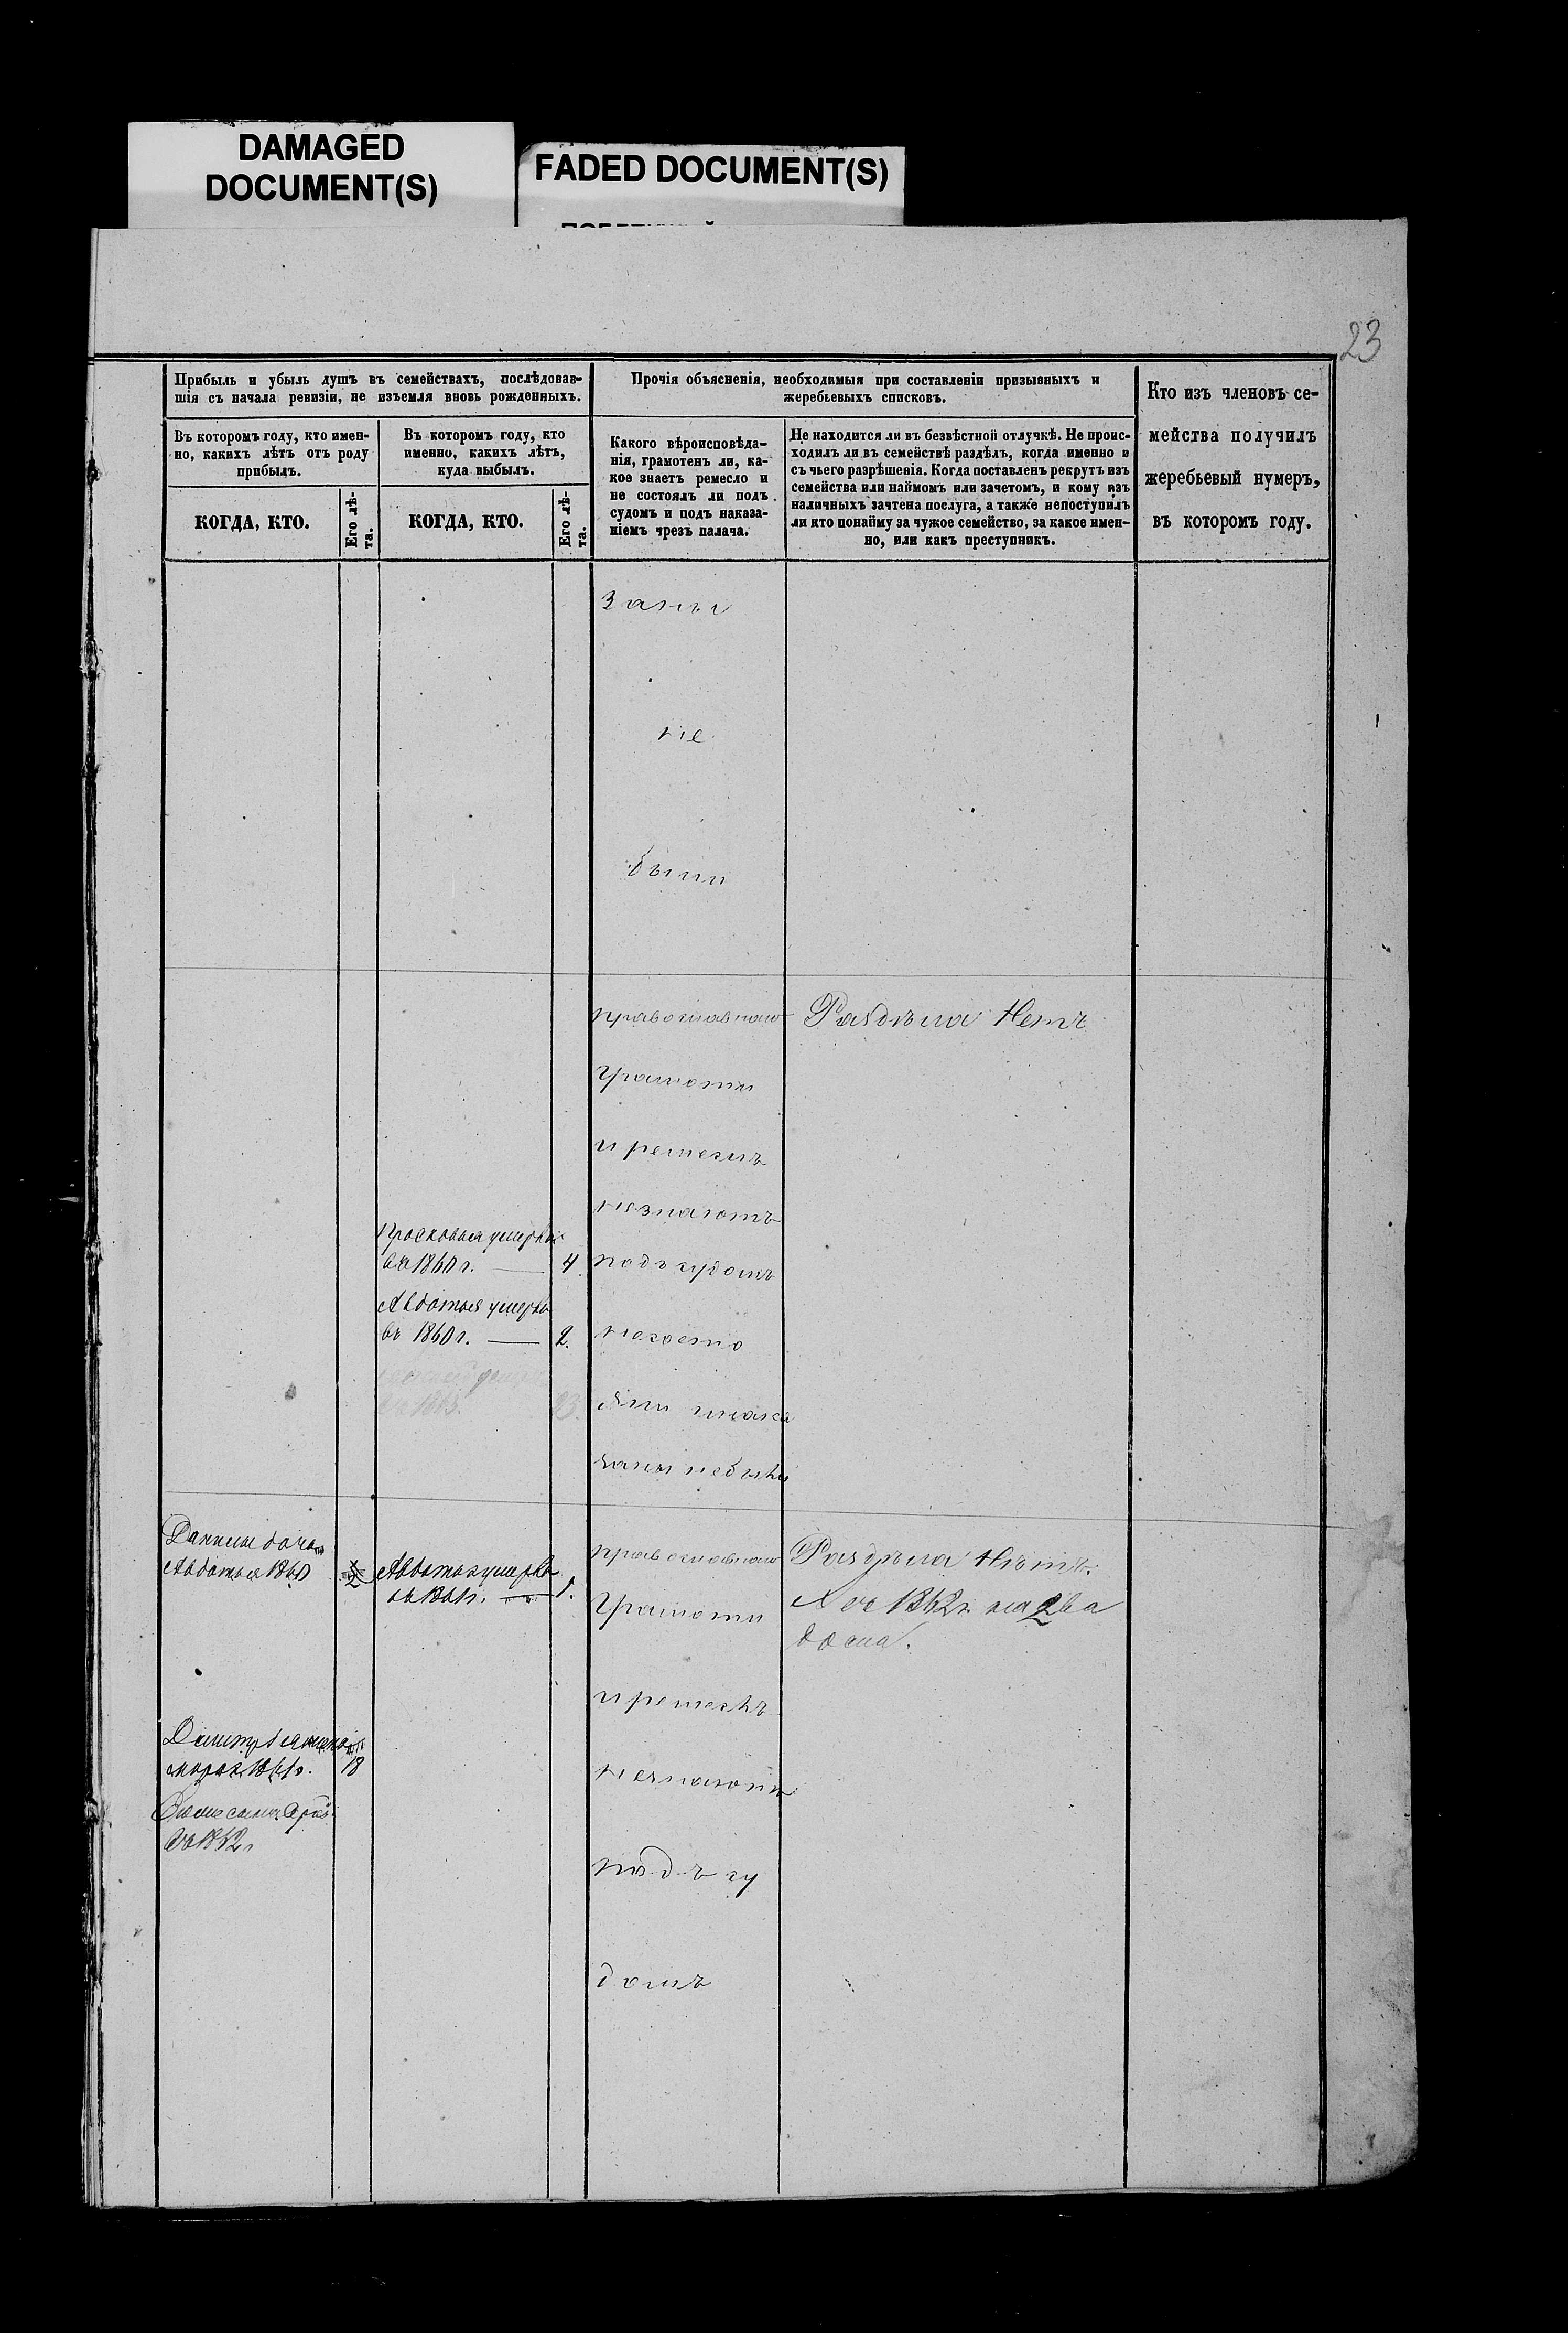 DAMAGED
DOCUMENT(S)
FADED DOCUMENT(S)
23
Прибыль и убыль душъ въ семействахъ, послѣдовав-
шія съ начала ревизіи, не изъемля вновь рожденныхъ.
Прочія объясненія, необходимыя при составленіи призывныхъ и
жеребьевыхъ списковъ.
Кто изъ членовъ се-
мейства получилъ
жеребьевый нумеръ,
въ которомъ году.
Въ которомъ году, кто имен-
но, какихъ лѣтъ отъ роду
прибылъ.
Въ которомъ году, кто
именно, какихъ лѣтъ,
куда выбылъ.
Какого вѣроисповѣда-
нія, грамотенъ ли, ка-
кое знаетъ ремесло и
не состоялъ ли подъ
судомъ и подъ наказа-
ніемъ чрезъ палача.
Не находится ли въ безвѣстной отлучкѣ. Не проис-
ходилъ ли въ семействѣ раздѣлъ, когда именно и
съ чьего разрѣшенія. Когда поставленъ рекрутъ изъ
семейства или наймомъ или зачетомъ, и кому изъ
наличныхъ зачтена послуга, а также непоступилъ
ли кто понайму за чужое семейство, за какое имен-
но, или какъ преступникъ.
КОГДА, КТО.
Его лѣ-
та.
КОГДА, КТО.
Его лѣ-
та.
заны
не
были
православнаго
Раздѣла Нетъ
грамоты
и ремеслъ
незнаютъ
Просковья умерла
въ 1860 г. — 4
подъ судомъ
Авдотья умерла
въ 1860 г. — 2.
несостоя
ли нака
23.
заны небыли
Данилы дочь
Авдотья 1860
2
Авдотья умерла
въ 1861г. — 1.
православнаго
Раздѣла Нѣтъ.
грамоты
въ 1862г. на два
дома.
и ремеслъ
1861г. 18
незнаютъ
сынъ
въ 1862г
подъ су
домъ